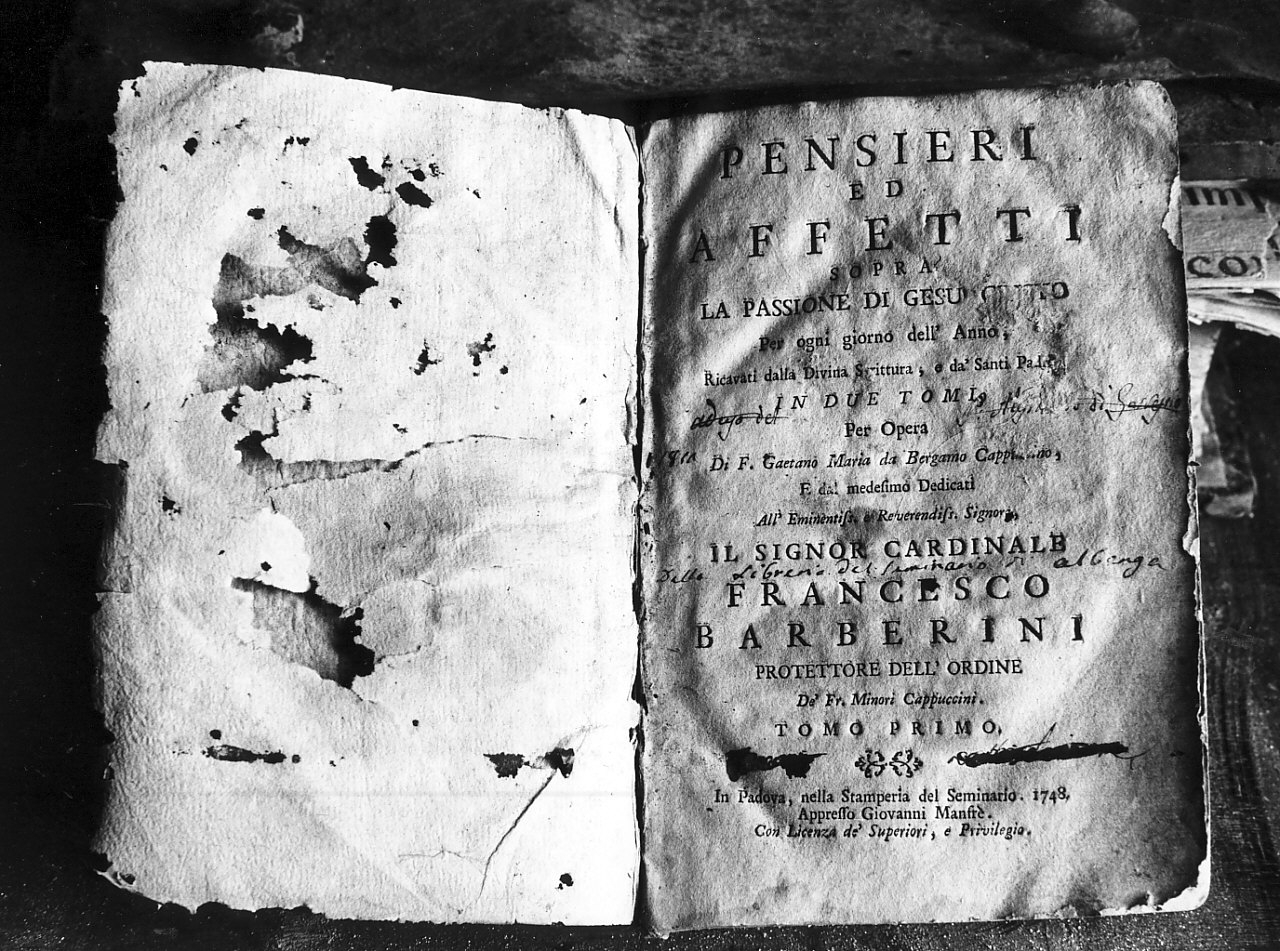 PENSIERI
ED
AFFETTI
SOPRA
LA PASSIONE DI GESU
Per ogni giorno dell' Anno,
Ricavati dalla Divina Scrittura, e da' Santi
IN DUE TOMI,
ad uso del
Per Opera
Di F. Gaetano Maria da Bergamo Cappuccino,
E dal medesimo Dedicati
All' Eminentiss. e Reverendiss. Signore,
IL SIGNOR CARDINALE
Della Libreria del Seminario di albenga
FRANCESCO
BARBERINI
PROTETTORE DELL' ORDINE
De' Fr. Minori Cappuccini.
TOMO PRIMO.
In Padova, nella Stamperia del Seminario. 1748.
Appresso Giovanni Manfrè.
Con Licenza de' Superiori, e Privilegio.
CO